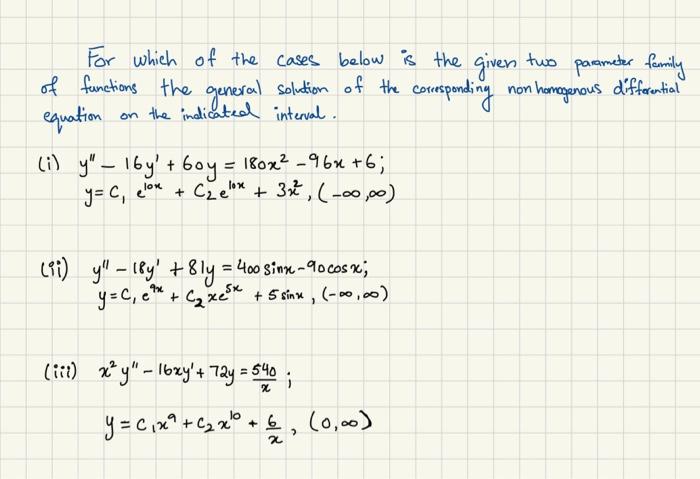 For which of the cases below is the given two parameter family
of functions the general solution of the corresponding non homogenous differential
equation on the indicated interval.
(i) y" - 16y' + 60y = 180x² - 96x + 6;
y = C₁ e^{10x} + C₂ e^{10x} + 3x², (-∞,∞)
(ii) y" - 18y' + 81y = 400 sinx - 90 cos x;
y = C₁ e^{9x} + C₂ x e^{5x} + 5 sinx, (-∞,∞)
(iii) x² y" - 16xy' + 72y = 540/x ;
y = C₁x⁹ + C₂ x¹⁰ + 6/x, (0,∞)